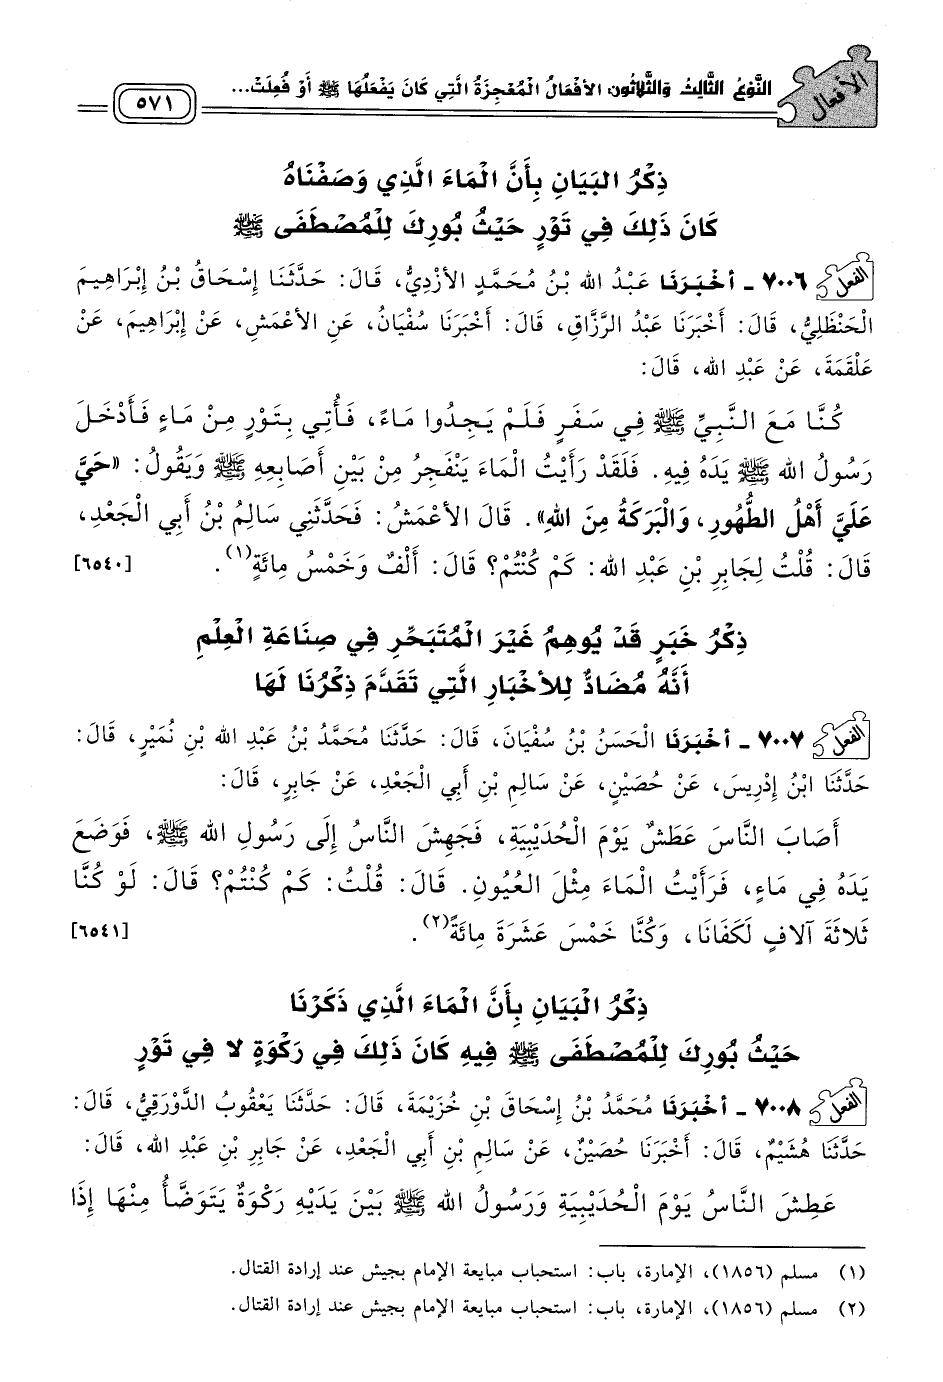 الأفعال
النَّوْعُ الثَّالِثُ وَالثَّلاثُون: الأَفْعَالُ الْمُعْجِزَةُ الَّتِي كَانَ يَفْعَلُهَا ﷺ أَوْ فُعِلَتْ...
٥٧١
ذِكْرُ الْبَيَانِ بِأَنَّ الْمَاءَ الَّذِي وَصَفْنَاهُ
كَانَ ذَلِكَ فِي تَوْرٍ حَيْثُ بُورِكَ لِلْمُصْطَفَى ﷺ
الفعل ٧٠٠٦ - أَخْبَرَنَا عَبْدُ اللهِ بْنُ مُحَمَّدٍ الأَزْدِيُّ، قَالَ: حَدَّثَنَا إِسْحَاقُ بْنُ إِبْرَاهِيمَ
الْحَنْظَلِيُّ، قَالَ: أَخْبَرَنَا عَبْدُ الرَّزَّاقِ، قَالَ: أَخْبَرَنَا سُفْيَانُ، عَنِ الأَعْمَشِ، عَنْ إِبْرَاهِيمَ، عَنْ
عَلْقَمَةَ، عَنْ عَبْدِ اللهِ، قَالَ:
كُنَّا مَعَ النَّبِيِّ ﷺ فِي سَفَرٍ فَلَمْ يَجِدُوا مَاءً، فَأُتِي بِتَوْرٍ مِنْ مَاءٍ فَأَدْخَلَ
رَسُولُ اللهِ ﷺ يَدَهُ فِيهِ. فَلَقَدْ رَأَيْتُ الْمَاءَ يَنْفَجِرُ مِنْ بَيْنِ أَصَابِعِهِ ﷺ وَيَقُولُ: «حَيَّ
عَلَيَّ أَهْلُ الطَّهُورِ، وَالْبَرَكَةُ مِنَ اللهِ». قَالَ الأَعْمَشُ: فَحَدَّثَنِي سَالِمُ بْنُ أَبِي الْجَعْدِ،
قَالَ: قُلْتُ لِجَابِرِ بْنِ عَبْدِ اللهِ: كَمْ كُنْتُمْ؟ قَالَ: أَلْفٌ وَخَمْسُ مِائَةٍ(١). [٦٥٤٠]
ذِكْرُ خَبَرٍ قَدْ يُوهِمُ غَيْرَ الْمُتَبَحِّرِ فِي صِنَاعَةِ الْعِلْمِ
أَنَّهُ مُضَادٌّ لِلأَخْبَارِ الَّتِي تَقَدَّمَ ذِكْرُنَا لَهَا
الفعل ٧٠٠٧ - أَخْبَرَنَا الْحَسَنُ بْنُ سُفْيَانَ، قَالَ: حَدَّثَنَا مُحَمَّدُ بْنُ عَبْدِ اللهِ بْنِ نُمَيْرٍ، قَالَ:
حَدَّثَنَا ابْنُ إِدْرِيسَ، عَنْ حُصَيْنٍ، عَنْ سَالِمِ بْنِ أَبِي الْجَعْدِ، عَنْ جَابِرٍ، قَالَ:
أَصَابَ النَّاسَ عَطَشٌ يَوْمَ الْحُدَيْبِيَةِ، فَجَهِشَ النَّاسُ إِلَى رَسُولِ اللهِ ﷺ، فَوَضَعَ
يَدَهُ فِي مَاءٍ، فَرَأَيْتُ الْمَاءَ مِثْلَ الْعُيُونِ. قَالَ: قُلْتُ: كَمْ كُنْتُمْ؟ قَالَ: لَوْ كُنَّا
ثَلاثَةَ آلافٍ لَكَفَانَا، وَكُنَّا خَمْسَ عَشَرَةَ مِائَةً(٢). [٦٥٤١]
ذِكْرُ الْبَيَانِ بِأَنَّ الْمَاءَ الَّذِي ذَكَرْنَا
حَيْثُ بُورِكَ لِلْمُصْطَفَى ﷺ فِيهِ كَانَ ذَلِكَ فِي رَكْوَةٍ لا فِي تَوْرٍ
الفعل ٧٠٠٨ - أَخْبَرَنَا مُحَمَّدُ بْنُ إِسْحَاقَ بْنِ خُزَيْمَةَ، قَالَ: حَدَّثَنَا يَعْقُوبُ الدَّوْرَقِيُّ، قَالَ:
حَدَّثَنَا هُشَيْمٌ، قَالَ: أَخْبَرَنَا حُصَيْنٌ، عَنْ سَالِمِ بْنِ أَبِي الْجَعْدِ، عَنْ جَابِرِ بْنِ عَبْدِ اللهِ، قَالَ:
عَطِشَ النَّاسُ يَوْمَ الْحُدَيْبِيَةِ وَرَسُولُ اللهِ ﷺ بَيْنَ يَدَيْهِ رَكْوَةٌ يَتَوَضَّأُ مِنْهَا إِذَا
(١) مسلم (١٨٥٦)، الإمارة، باب: استحباب مبايعة الإمام بجيش عند إرادة القتال.
(٢) مسلم (١٨٥٦)، الإمارة، باب: استحباب مبايعة الإمام بجيش عند إرادة القتال.